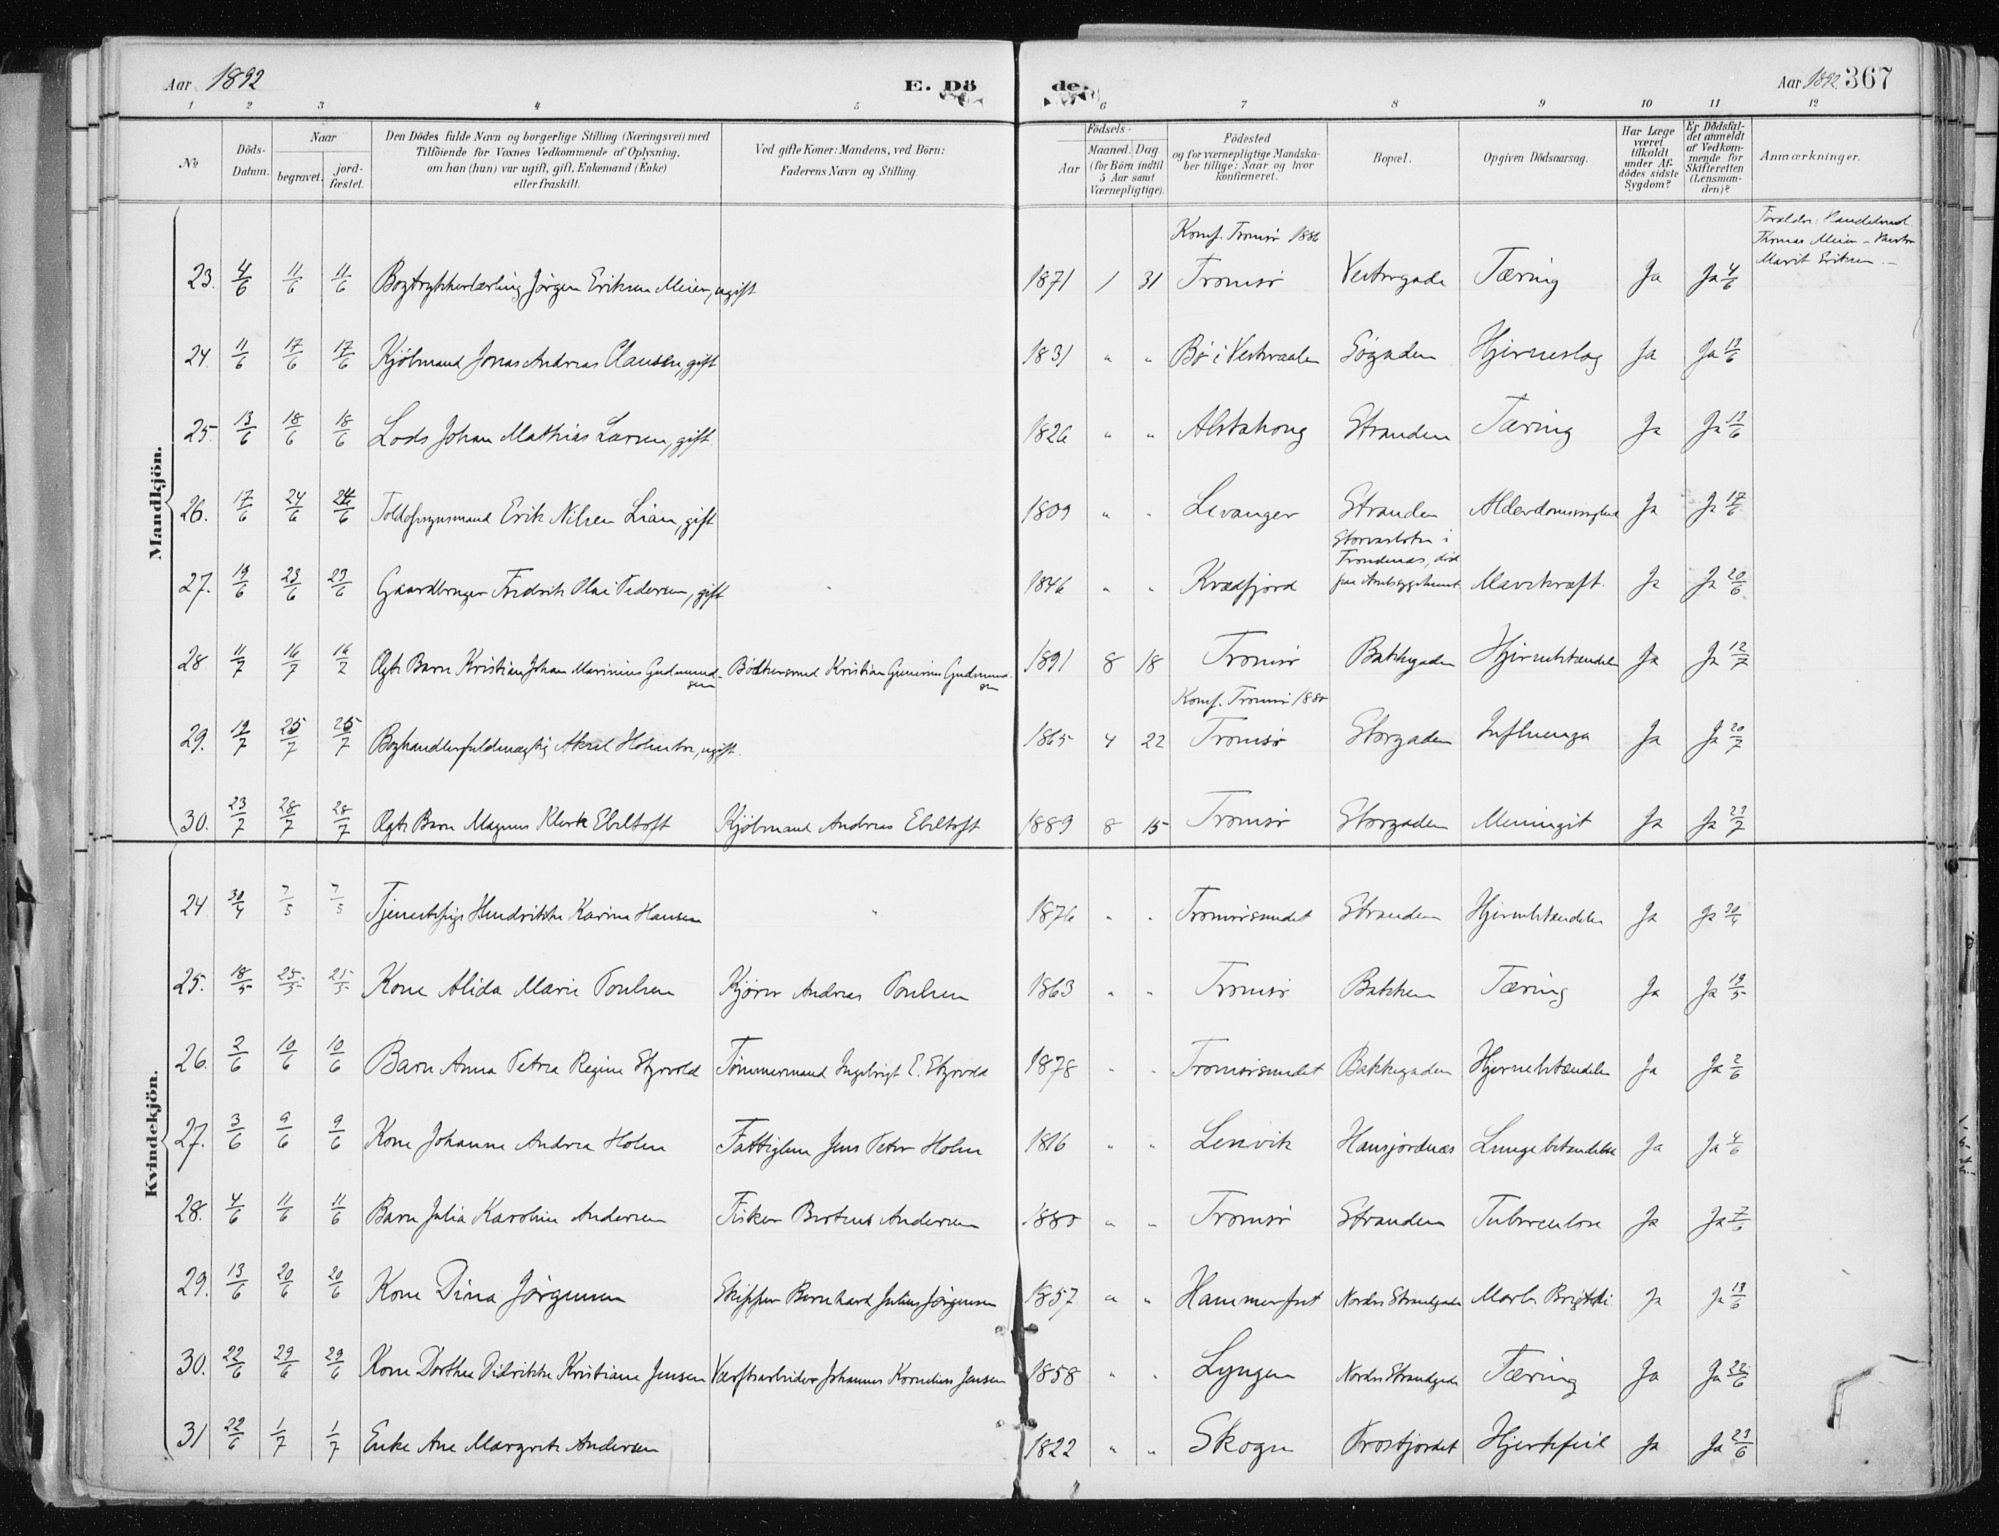 Aar 1892 E. Dö de. Aar 1892 367
1 2 3 4 5 6 7 8 9 10 11 12
No
Döds-Datum.
Naar begravet. jord-fæstet.
Den Dödes fulde Navn og borgerlige Stilling (Næringsvei) med
Tilföiende for Voxnes Vedkommende af Oplysning,
om han (hun) var ugift, gift, Enkemand (Enke)
eller fraskilt.
Ved gifte Koner: Mandens, ved Börn:
Faderens Navn og Stilling.
Födsels-
Aar Maaned. Dag
(for Börn indtil
5 Aar samt
Værnepligtige).
Födested
og for værnepligtige Mandska-
ber tillige: Naar og hvor
konfirmeret.
Bopæl.
Opgiven Dödsaarsag.
Har Læge
været
tilkaldt
under Af-
dödes sidste
Sygdom?
Er Dödsfal-
det anmeldt
af Vedkom-
mende for
Skifteretten
(Lensman-
den)?
Anmærkninger.
Mandkjön.
Konf. Tromsø 1886
Forældre: Handelsmd
Thomas Meier
Marit Eriksen
23. 4/6 11/6 11/6 Bogtrykkerlærling Jörgen Eriksen Meier, ugift 1871 1 31 Tromsø Vestregade Tæring Ja Ja 4/6
24 11/6 17/6 17/6 Kjöbmand Jonas Andreas Clausen, gift 1831 " " Bø i Vesteraalen Søgaden Hjerneslag Ja Ja 13/6
25. 13/6 18/6 18/6 Lods Johan Mathias Larsen, gift 1826 " " Alstahoug Stranden Tæring Ja Ja 13/6
26. 17/6 24/6 24/6 Toldopsynsmand Erik Nilsen Lian, gift 1809 " " Levanger Stranden Alderdomssvaghed Ja Ja 17/6
27. 19/6 23/6 23/6 Gaardbruger Fredrik Olai Pedersen, gift 1846 " " Kvædfjord i Trondenæs, død paa Amtssygehuset Mavekræft Ja Ja 20/6
28 11/7 16/7 16/7 Ægte Barn Kristian Johan Marinius Gudmundsen Bödkersvend Kristian Gudmundsen 1891 8 18 Tromsø Bakkegaden Hjernebetændelse Ja Ja 12/7
Konf. Tromsø 1880
29. 19/7 25/7 25/7 Boghandlerfuldmægtig Aksel Holmboe, ugift. 1865 4 22 Tromsø Storgaden Influenza Ja Ja 20/7
30. 23/7 28/7 28/7 Ægte Barn Magnus Klerk Ebeltoft Kjöbmand Andreas Ebeltoft 1889 8 15 Tromsø Storgaden Meningit Ja Ja 23/7
Kvindekjön.
24 30/4 7/5 7/5 Tjenestepige Hendrikke Karine Hansen 1876 " " Tromsøsundet Stranden Hjernebetændelse Ja Ja 30/4
25. 18/5 25/5 25/5 Kone Alida Marie Poulsen Kjører Andreas Poulsen 1863 " " Tromsø Bakken Tæring Ja Ja 19/5
26. 2/6 10/6 10/6 Barn Anna Petra Regine Styrvold Tømmermand Ingebrigt E. Styrvold 1878 " " Tromsøsundet Bakkegaden Hjernebetændelse Ja Ja 2/6
27. 3/6 9/6 9/6 Kone Johanne Andrea Holm Fattiglem Jens Peter Holm 1816 " " Lenvik Hansjordnæs Lungebetændelse Ja Ja 4/6
28. 4/6 11/6 11/6 Barn Julia Karoline Andersen Fisker Berteus Andersen 1880 " " Tromsø Stranden Tuberculose Ja Ja 7/6
29. 13/6 20/6 20/6 Kone Dina Jörgensen Skipper Bernhard Julius Jörgensen 1857 " " Hammerfest Nordre Strandgade Morb. Brightii Ja Ja 13/6
30. 22/6 29/6 29/6 Kone Dorthea Didrikke Kristiane Jensen Værftsarbeider Johannes Kornelius Jensen 1858 " " Lyngen Nordre Strandgade Tæring Ja Ja 22/6
31 22/6 1/7 1/7 Enke Ane Margrete Andersen 1822 " " Skogn Prostjordet Hjertefeil Ja Ja 23/6